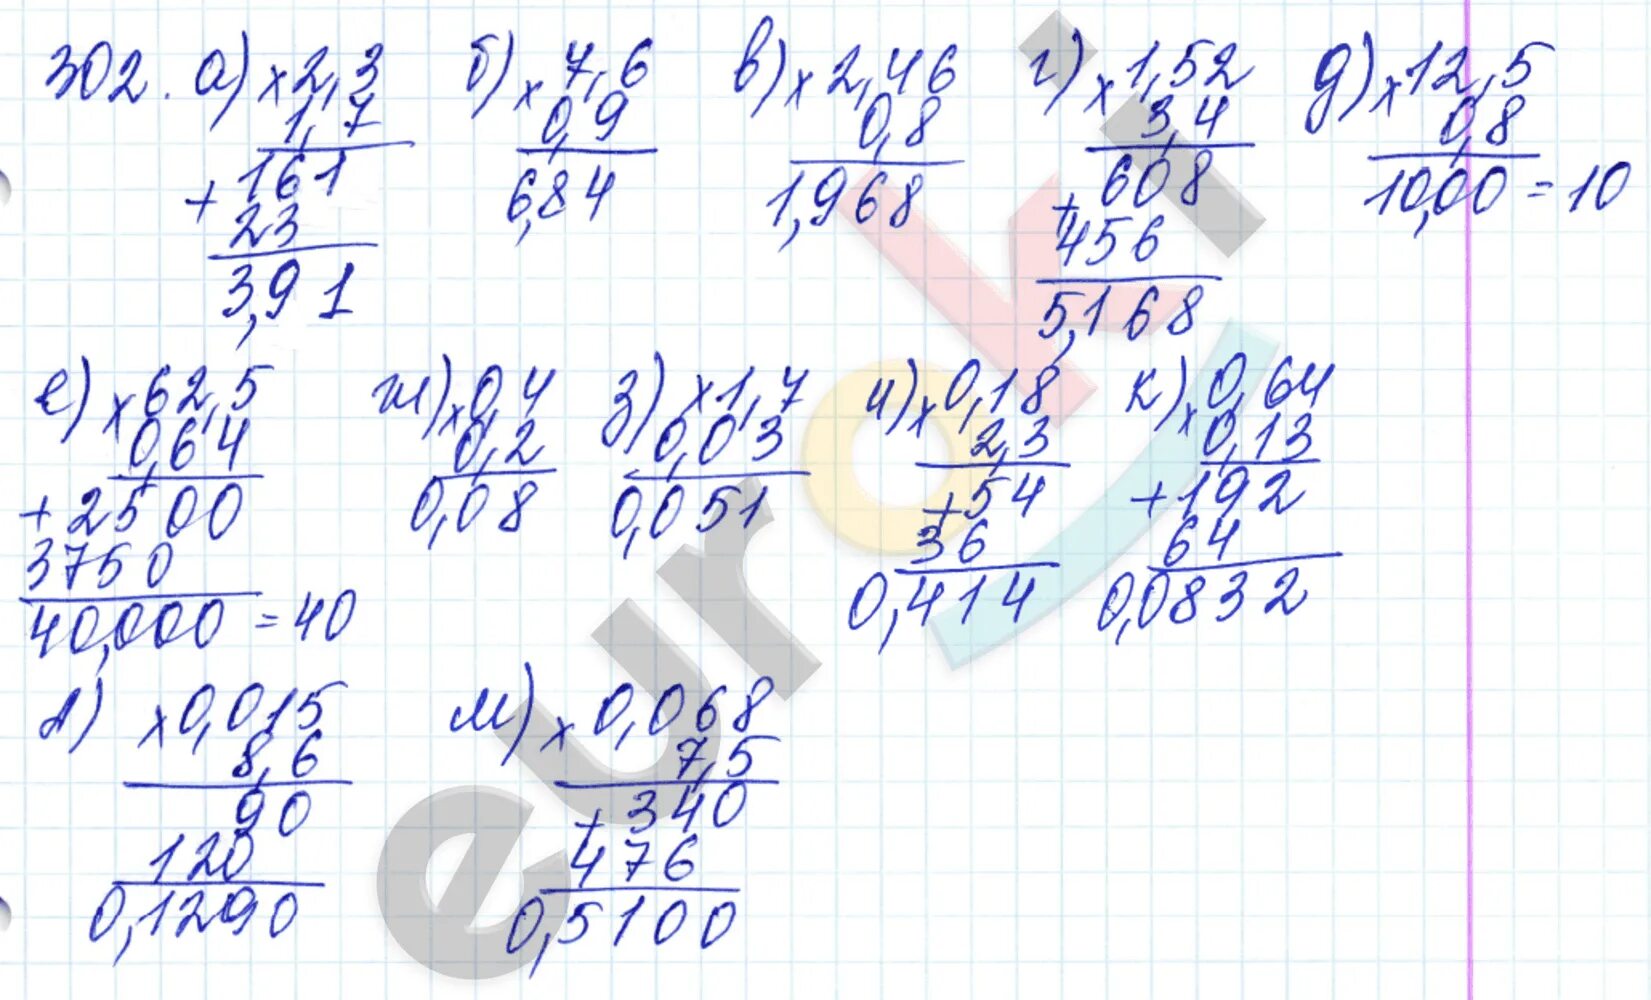 302. а) ×2,3 б) ×7,6 в) ×2,46 г) ×1,52 д) ×12,5
1,7 0,9 0,8 3,4 0,8
+161 6,84 1,968 +608 10,00 = 10
23 456
3,91 5,168
е) ×62,5 ж) ×0,4 з) ×1,7 и) ×0,18 к) ×0,64
0,64 0,2 0,03 2,3 0,13
+2500 0,08 0,051 +54 +192
3750 36 64
40,000 = 40 0,414 0,0832
л) ×0,015 м) ×0,068
8,6 7,5
90 +340
120 476
0,1290 0,5100
euroki